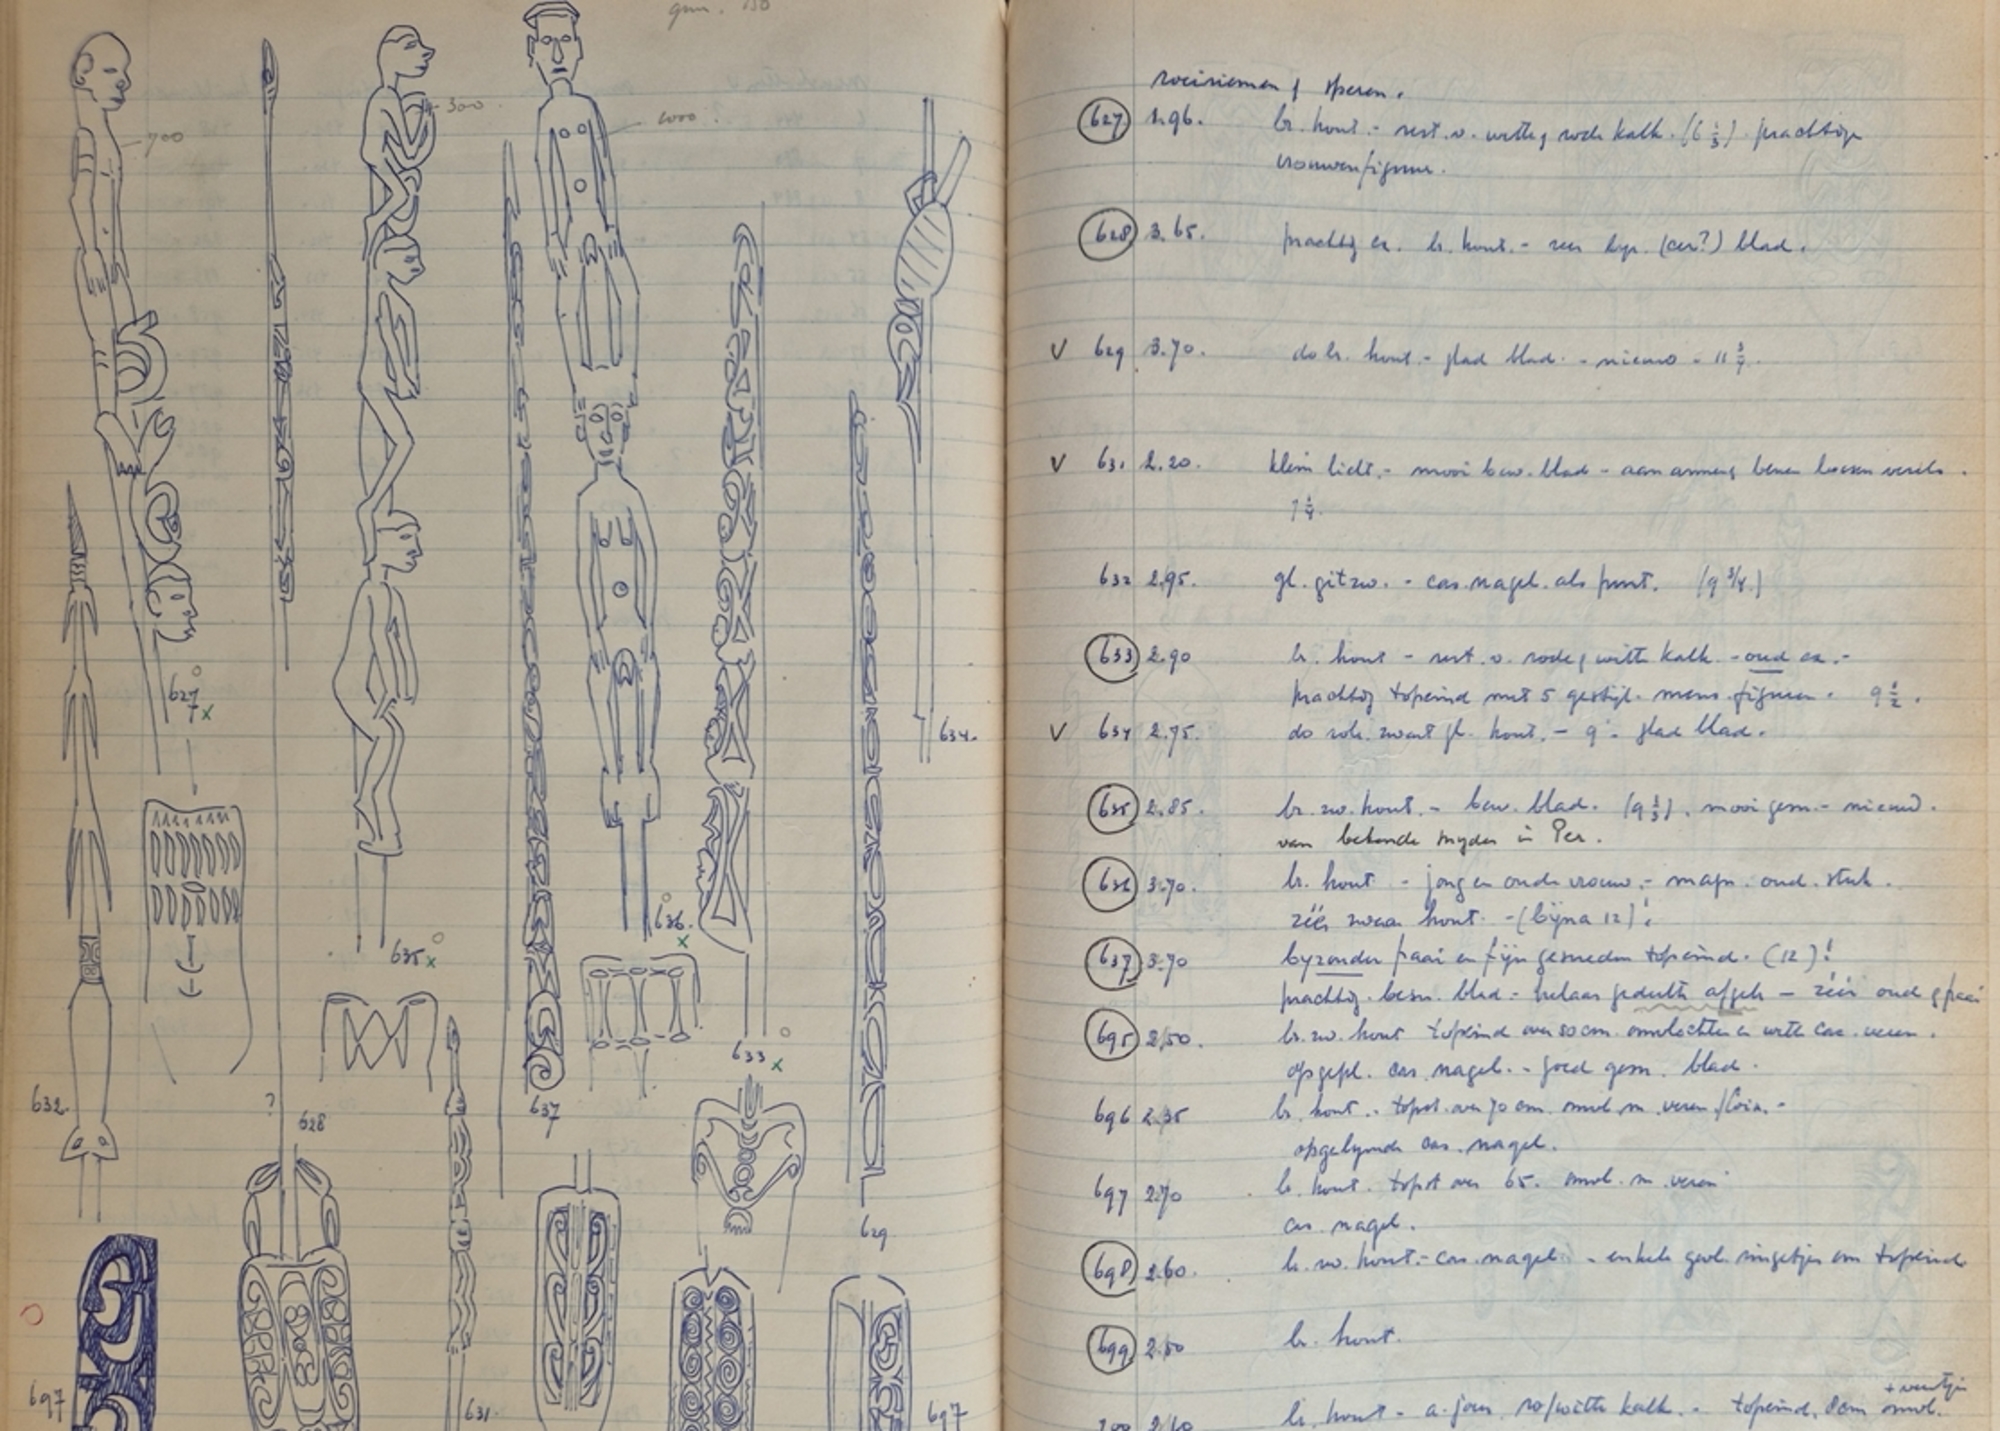 gum. 150
700
300
1000 ?
627
x
634.
635 x
636.
x
633
x
632.
?
628
637
629
631.
697
697
roeiriemen & speren.
627 1.96. br. hout. - rest. v. witte, rode kalk. (6 1/3). prachtige
vrouwenfiguur.
628 3.65. prachtig ex. br. hout. - zeer bijz. (cer?) blad.
V 629 3.70. do br. hout. - glad blad. - nieuw - 11
V 631 2.20. klein licht. - mooi bew. blad - aan armen & benen
7 1/4.
632 2.95. gl. gitzw. - cas. nagel als punt. (9 3/4)
633 2.90 br. hout - rest. v. rode & witte kalk. - oud ex. -
prachtig topeind met 5 gestyl. mens. figuren. 9 1/2.
V 634 2.75. do zwart gl. hout. - 9. - glad blad.
635 2.85. br. zw. hout. - bew. blad. (9 1/3). mooi gesn. - nieuw.
van bekende snyder in Per.
636 3.70. br. hout - jong en oude vrouw. - oud. stuk.
zéér zwaar hout. - (bijna 12)!
637 3.70 byzonder fraai en fijn gesneden topeind. (12)!
prachtig besn. blad. - helaas gedeelte afgeb. - zéér oud & fraai
695 2,50. br. zw. hout topeind over 50 cm. omvlochten en witte cas. veren.
opgepl. cas. nagel. - goed gesn. blad.
696 2.35 br. hout. - topst. over 70 cm. omvl. m. veren
cas. nagel.
697 2.70 br. hout. topst over 65. omvl. m. veren
cas. nagel.
698 2.60. br. zw. hout. - cas. nagel. - enkele gevl. ringetjes om topeind
699 2.50 br. hout.
700 2.60 br. hout - a. jour, ro/witte kalk. - topeind. 8 cm omvl.